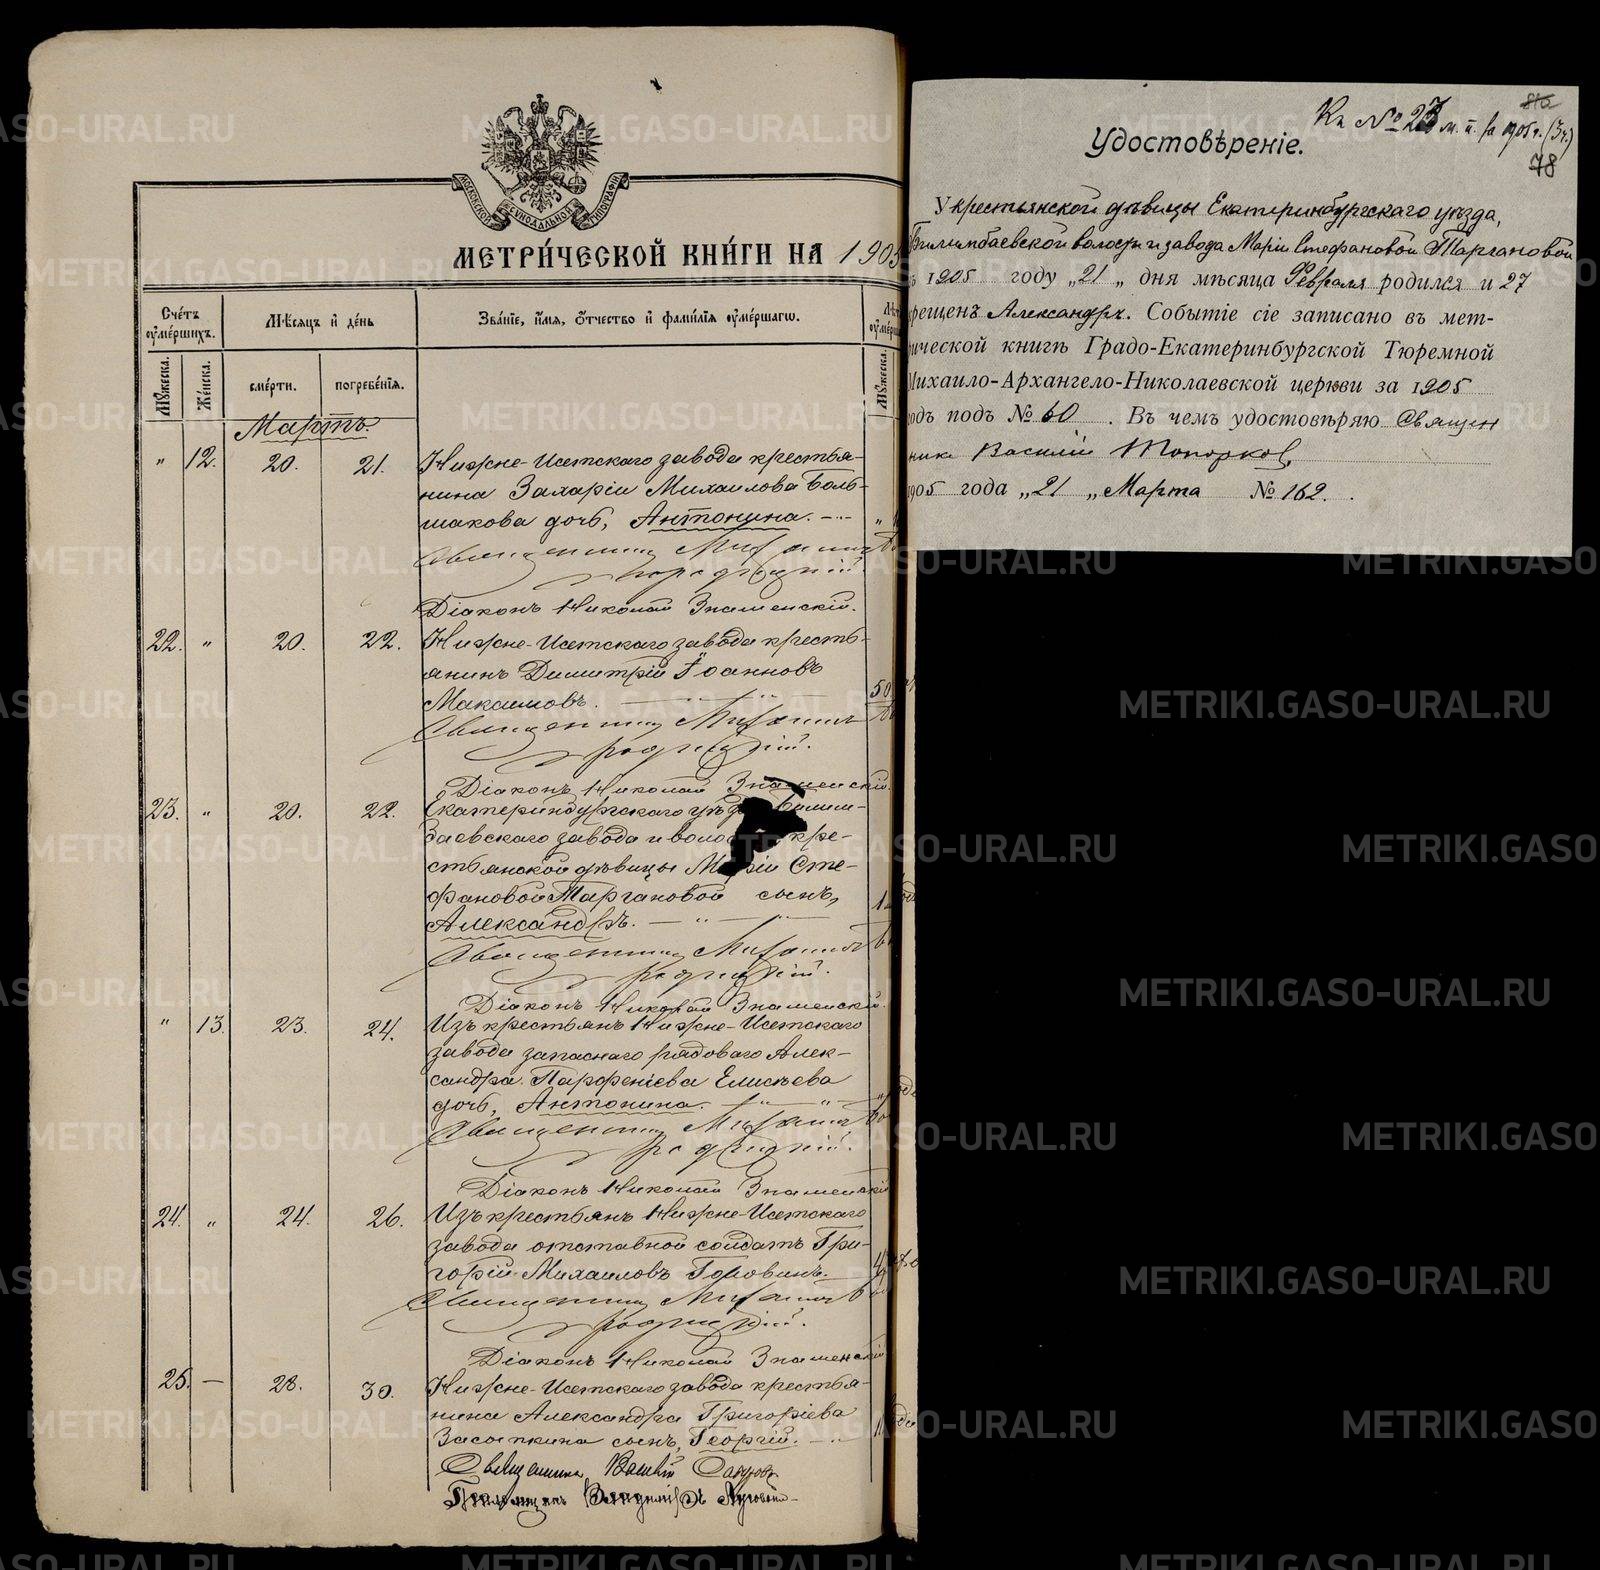 МОСКОВСКОЙ СѴНОДАЛЬНОЙ ТИПОГРАФІИ
МЕТРИ́ЧЕСКОЙ КНИ́ГИ НА 1905
Сче́тъ ѹме́ршихъ.
Мѣ́сяцъ и де́нь
Зва́нїе, и́мя, ѻ́тчество и фами́лїя ѹме́ршагѡ.
Мꙋ́жеска.
Же́нска.
сме́рти.
погребе́нїя.
Мꙋ́жеска.
Мартъ.
„ 12. 20. 21. Нижне-Исетскаго завода крестья-
нина Захаріи Михаилова Боль-
шакова дочь, Антонина.
Священникъ Михаилъ
Діаконъ Николай Знаменскій.
22. „ 20. 22. Нижне-Исетскаго завода кресть-
янинъ Димитрій Іоанновъ
Макаимовъ. 50
Священникъ Михаилъ
Діаконъ Николай Знаменскій.
23. „ 20. 22. Екатеринбургскаго Билим-
баевскаго завода и воло кре-
стьянской дѣвицы Маріи Сте-
фановой Таргановой сынъ,
Александръ.
Священникъ Михаилъ
Діаконъ Николай Знаменскій.
„ 13. 23. 24. Изъ крестьянъ Нижне-Исетскаго
завода запаснаго рядоваго Алек-
сандра Парфеніева Елисѣева
дочь, Антонина.
Священникъ Михаилъ
Діаконъ Николай Знаменскій
24. „ 24. 26. Изъ крестьянъ Нижне-Исетскаго
завода отставной солдатъ Гри-
горій Михаиловъ
Священникъ Михаилъ
Діаконъ Николай Знаменскій
25. — 28. 30. Нижне-Исетскаго завода крестья-
нина Александра Григоріева
Засыпкина сынъ, Георгій.
Священникъ
Къ № 23 м. к. за 1905 г. (3 ч.)
78
Удостовѣреніе.
У крестьянской дѣвицы Екатеринбургскаго уѣзда,
Билимбаевской волости и завода Маріи Стефановой Таргановой
въ 1905 году „21„ дня мѣсяца Февраля родился и 27
крещенъ Александръ. Событіе сіе записано въ мет-
рической книгѣ Градо-Екатеринбургской Тюремной
Михаило-Архангело-Николаевской церкви за 1905
годъ подъ № 60. Въ чемъ удостовѣряю Священ
никъ Василій Топорковъ
1905 года „21„ Марта № 162.
METRIKI.GASO-URAL.RU